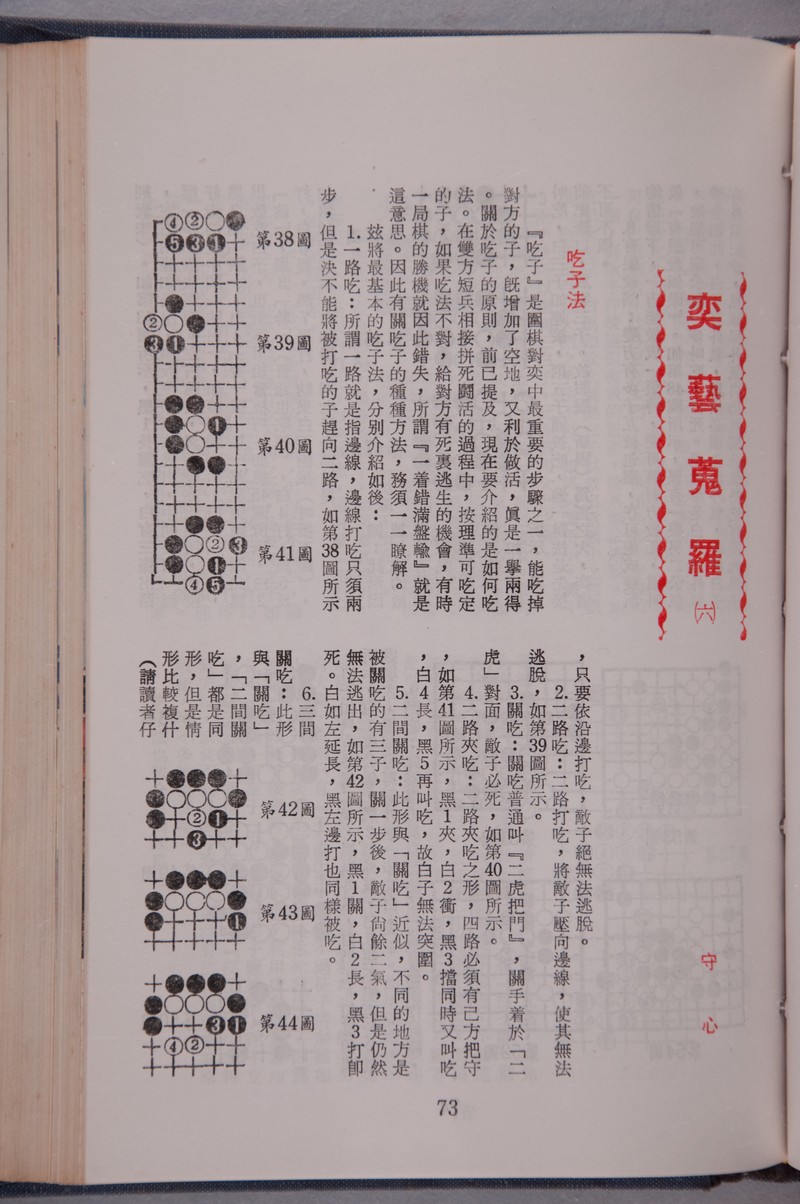 奕藝蒐羅㈥
守心
吃子法
『吃子』是圍棋對奕中最重要的步驟之一，能吃掉
對方的子，既增加了空地，又利於做活，眞是一擧兩得
。關於吃子的原則，前已提及，現在要介紹的是如何吃
法。在雙方短兵相接拼死鬪活的過程中，按理準可吃定
的子，如果吃法不對，給對方有死裏逃生的機會，有時
一局棋的勝機就因此錯失，所謂『一着錯滿盤輸』就是
這意思。因此有關吃子的種種方法，務須一一瞭解。
玆將最基本的吃子法，分別介紹如後：
1.一路吃：所謂一路就是指邊線，邊線打吃只須兩
步，但是決不能將被打吃的子趕向二路，如第38圖所示
第38圖
④②
❺❸❶
第39圖
②
❸❶
第40圖
❶
第41圖
②❸
❶
④❺
，只要依沿邊打吃，敵子絕無法逃脫。
2.二路吃：二路打吃，將敵子壓向邊線，使其無法
逃脫，如第39圖所示。
3.關吃：關吃普通叫『二虎把門』，關手着於「二
虎」對面，敵子必死，如第40圖所示。
4.二路夾吃：二路夾吃之形，四路必須有己方把守
，如第41圖所示，黑1夾，白2衝，黑3擋同時又叫吃
，白4長，黑5再叫吃，故白子無法突圍。
5.二間關吃：此形與「關吃」近似，不同的地方是
被關吃的有三子，關一步後，敵子尙餘二氣，但是仍然
無法逃出，如第42圖所示，黑1關，白2長，黑3打卽
死。白如左延長，黑左邊打也同樣被吃。
6.三間
關吃：此形
與「關吃」
，「二間關
吃」都是同
形，但是情
形比較複什
（請讀者仔
第42圖
②❶
❸
第43圖
❶
第44圖
❸❶
④②
73